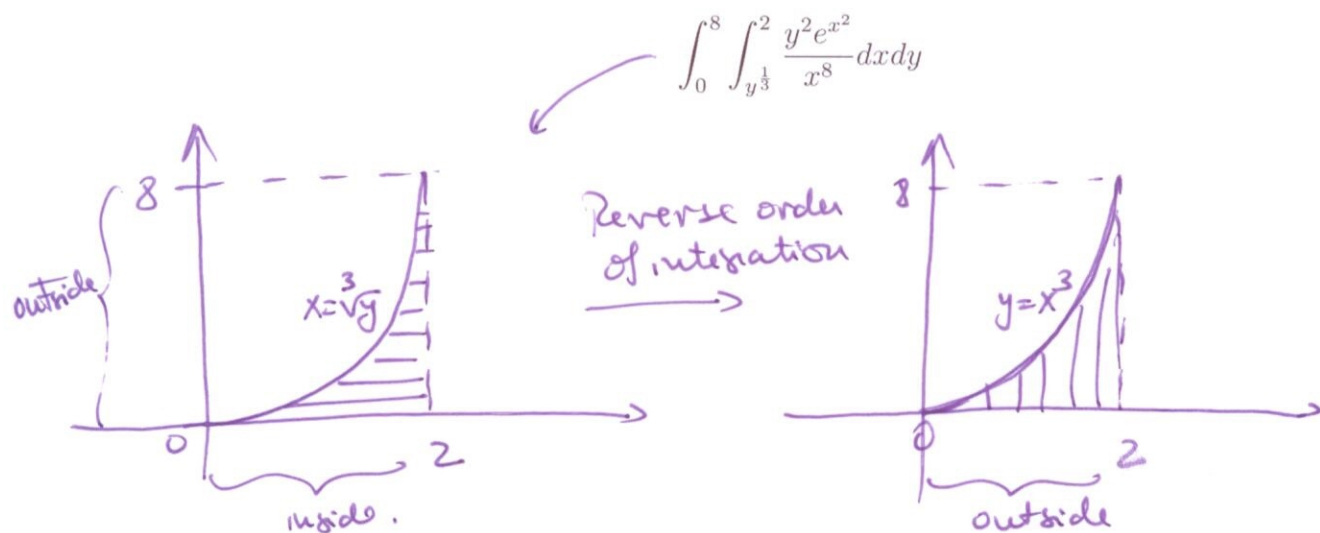 \int_0^8 \int_{y^{\frac{1}{3}}}^2 \frac{y^2 e^{x^2}}{x^8} dxdy
8
outside
x=\sqrt[3]{y}
0
2
inside.
Reverse order
of integration
8
y=x^3
0
2
outside